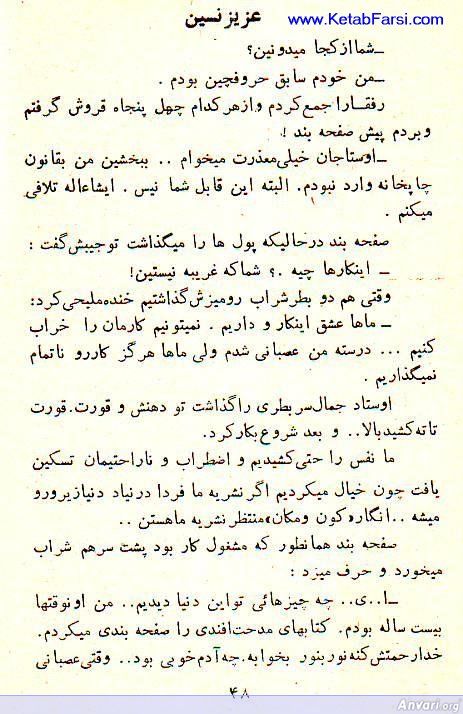 www.KetabFarsi.com
عزیز نسین
ــ شما از کجا میدونین؟
ــ من خودم سابق حروفچین بودم .
رفقارا جمع کردم و از هر کدام چهل پنجاه قروش گرفتم
و بردم پیش صفحه بند !
ــ اوستاجان خیلی معذرت میخوام .. ببخشین من بقانون
چاپخانه وارد نبودم. البته این قابل شما نیس . ایشاءاله تلافی
میکنم .
صفحه بند درحالیکه پول ها را میگذاشت توجیبش گفت :
ــ اینکارها چیه .؟ شما که غریبه نیستین!
وقتی هم دو بطر شراب رومیزش گذاشتیم خنده ملیحی کرد:
ــ ماها عشق اینکار و داریم . نمیتونیم کارمان را خراب
کنیم ... درسته من عصبانی شدم ولی ماها هرگز کاررو ناتمام
نمیگذاریم .
اوستاد جمال سر بطری را گذاشت تو دهنش و قورت.قورت
تا ته کشید بالا.. و بعد شروع بکار کرد.
ما نفس را حتی کشیدیم و اضطراب و ناراحتیمان تسکین
یافت چون خیال میکردیم اگر نشریه ما فردا در نیاد دنیا زیرورو
میشه .. انگار «کون ومکان» منتظر نشریه ما هستن ..
صفحه بند همانطور که مشغول کار بود پشت سرهم شراب
میخورد و حرف میزد :
ــ ا..ی.. چه چیزهائی تو این دنیا دیدیم.. من اونوقتها
بیست ساله بودم. کتابهای مدحت افندی را صفحه بندی میکردم.
خدا رحمتش کنه نور بنور بخوابه. چه آدم خوبی بود.. وقتی عصبانی
۴۸
Anvari.org